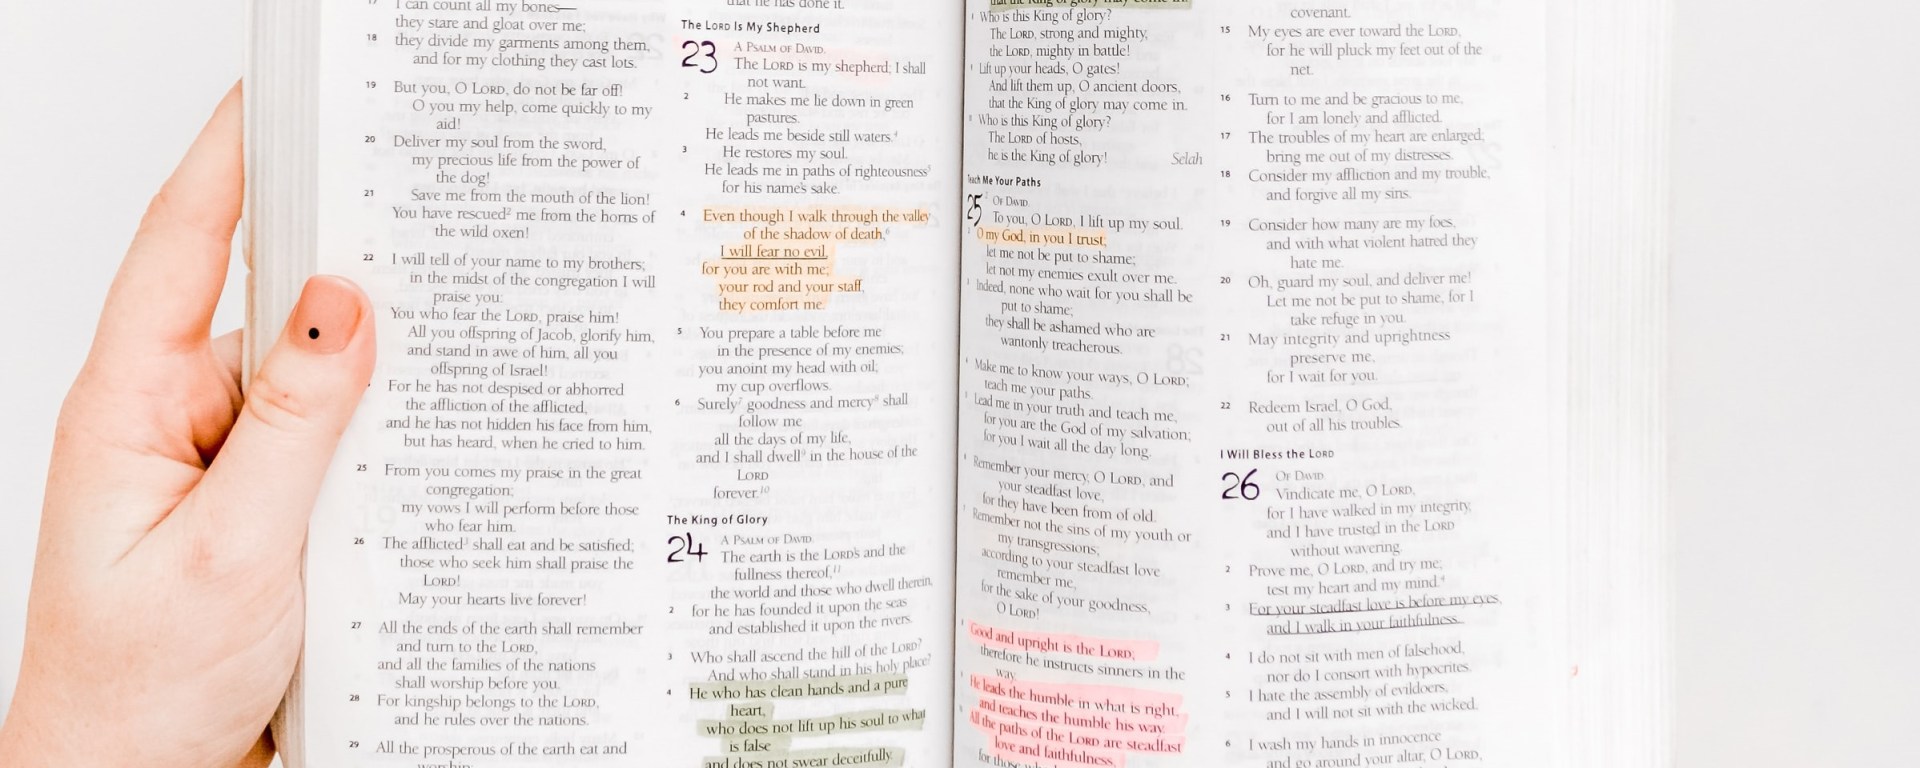 17 I can count all my bones—
they stare and gloat over me;
18 they divide my garments among them,
and for my clothing they cast lots.
19 But you, O LORD, do not be far off!
O you my help, come quickly to my
aid!
20 Deliver my soul from the sword,
my precious life from the power of
the dog!
21 Save me from the mouth of the lion!
You have rescued² me from the horns of
the wild oxen!
22 I will tell of your name to my brothers;
in the midst of the congregation I will
praise you:
You who fear the LORD, praise him!
All you offspring of Jacob, glorify him,
and stand in awe of him, all you
offspring of Israel!
For he has not despised or abhorred
the affliction of the afflicted,
and he has not hidden his face from him,
but has heard, when he cried to him.
25 From you comes my praise in the great
congregation;
my vows I will perform before those
who fear him.
26 The afflicted³ shall eat and be satisfied;
those who seek him shall praise the
LORD!
May your hearts live forever!
27 All the ends of the earth shall remember
and turn to the LORD,
and all the families of the nations
shall worship before you.
28 For kingship belongs to the LORD,
and he rules over the nations.
29 All the prosperous of the earth eat and
worship;
that he has done it.
The LORD Is My Shepherd
23 A PSALM OF DAVID.
The LORD is my shepherd; I shall
not want.
2 He makes me lie down in green
pastures.
He leads me beside still waters.⁴
3 He restores my soul.
He leads me in paths of righteousness⁵
for his name's sake.
4 Even though I walk through the valley
of the shadow of death,⁶
I will fear no evil,
for you are with me;
your rod and your staff,
they comfort me.
5 You prepare a table before me
in the presence of my enemies;
you anoint my head with oil;
my cup overflows.
6 Surely⁷ goodness and mercy⁸ shall
follow me
all the days of my life,
and I shall dwell⁹ in the house of the
LORD
forever.¹⁰
The King of Glory
24 A PSALM OF DAVID.
The earth is the LORD's and the
fullness thereof,¹¹
the world and those who dwell therein,
2 for he has founded it upon the seas
and established it upon the rivers.
3 Who shall ascend the hill of the LORD?
And who shall stand in his holy place?
4 He who has clean hands and a pure
heart,
who does not lift up his soul to what
is false
and does not swear deceitfully.
that the King of glory may come in.
Who is this King of glory?
The LORD, strong and mighty,
the LORD, mighty in battle!
Lift up your heads, O gates!
And lift them up, O ancient doors,
that the King of glory may come in.
Who is this King of glory?
The LORD of hosts,
he is the King of glory! Selah
Teach Me Your Paths
25 OF DAVID.
To you, O LORD, I lift up my soul.
O my God, in you I trust;
let me not be put to shame;
let not my enemies exult over me.
Indeed, none who wait for you shall be
put to shame;
they shall be ashamed who are
wantonly treacherous.
Make me to know your ways, O LORD;
teach me your paths.
Lead me in your truth and teach me,
for you are the God of my salvation;
for you I wait all the day long.
Remember your mercy, O LORD, and
your steadfast love,
for they have been from of old.
Remember not the sins of my youth or
my transgressions;
according to your steadfast love
remember me,
for the sake of your goodness,
O LORD!
Good and upright is the LORD;
therefore he instructs sinners in the
way.
He leads the humble in what is right,
and teaches the humble his way.
All the paths of the LORD are steadfast
love and faithfulness,
for those
covenant.
15 My eyes are ever toward the LORD,
for he will pluck my feet out of the
net.
16 Turn to me and be gracious to me,
for I am lonely and afflicted.
17 The troubles of my heart are enlarged;
bring me out of my distresses.
18 Consider my affliction and my trouble,
and forgive all my sins.
19 Consider how many are my foes,
and with what violent hatred they
hate me.
20 Oh, guard my soul, and deliver me!
Let me not be put to shame, for I
take refuge in you.
21 May integrity and uprightness
preserve me,
for I wait for you.
22 Redeem Israel, O God,
out of all his troubles.
I Will Bless the LORD
26 OF DAVID.
Vindicate me, O LORD,
for I have walked in my integrity,
and I have trusted in the LORD
without wavering.
2 Prove me, O LORD, and try me;
test my heart and my mind.⁴
3 For your steadfast love is before my eyes,
and I walk in your faithfulness.
4 I do not sit with men of falsehood,
nor do I consort with hypocrites.
5 I hate the assembly of evildoers,
and I will not sit with the wicked.
6 I wash my hands in innocence
and go around your altar, O LORD,